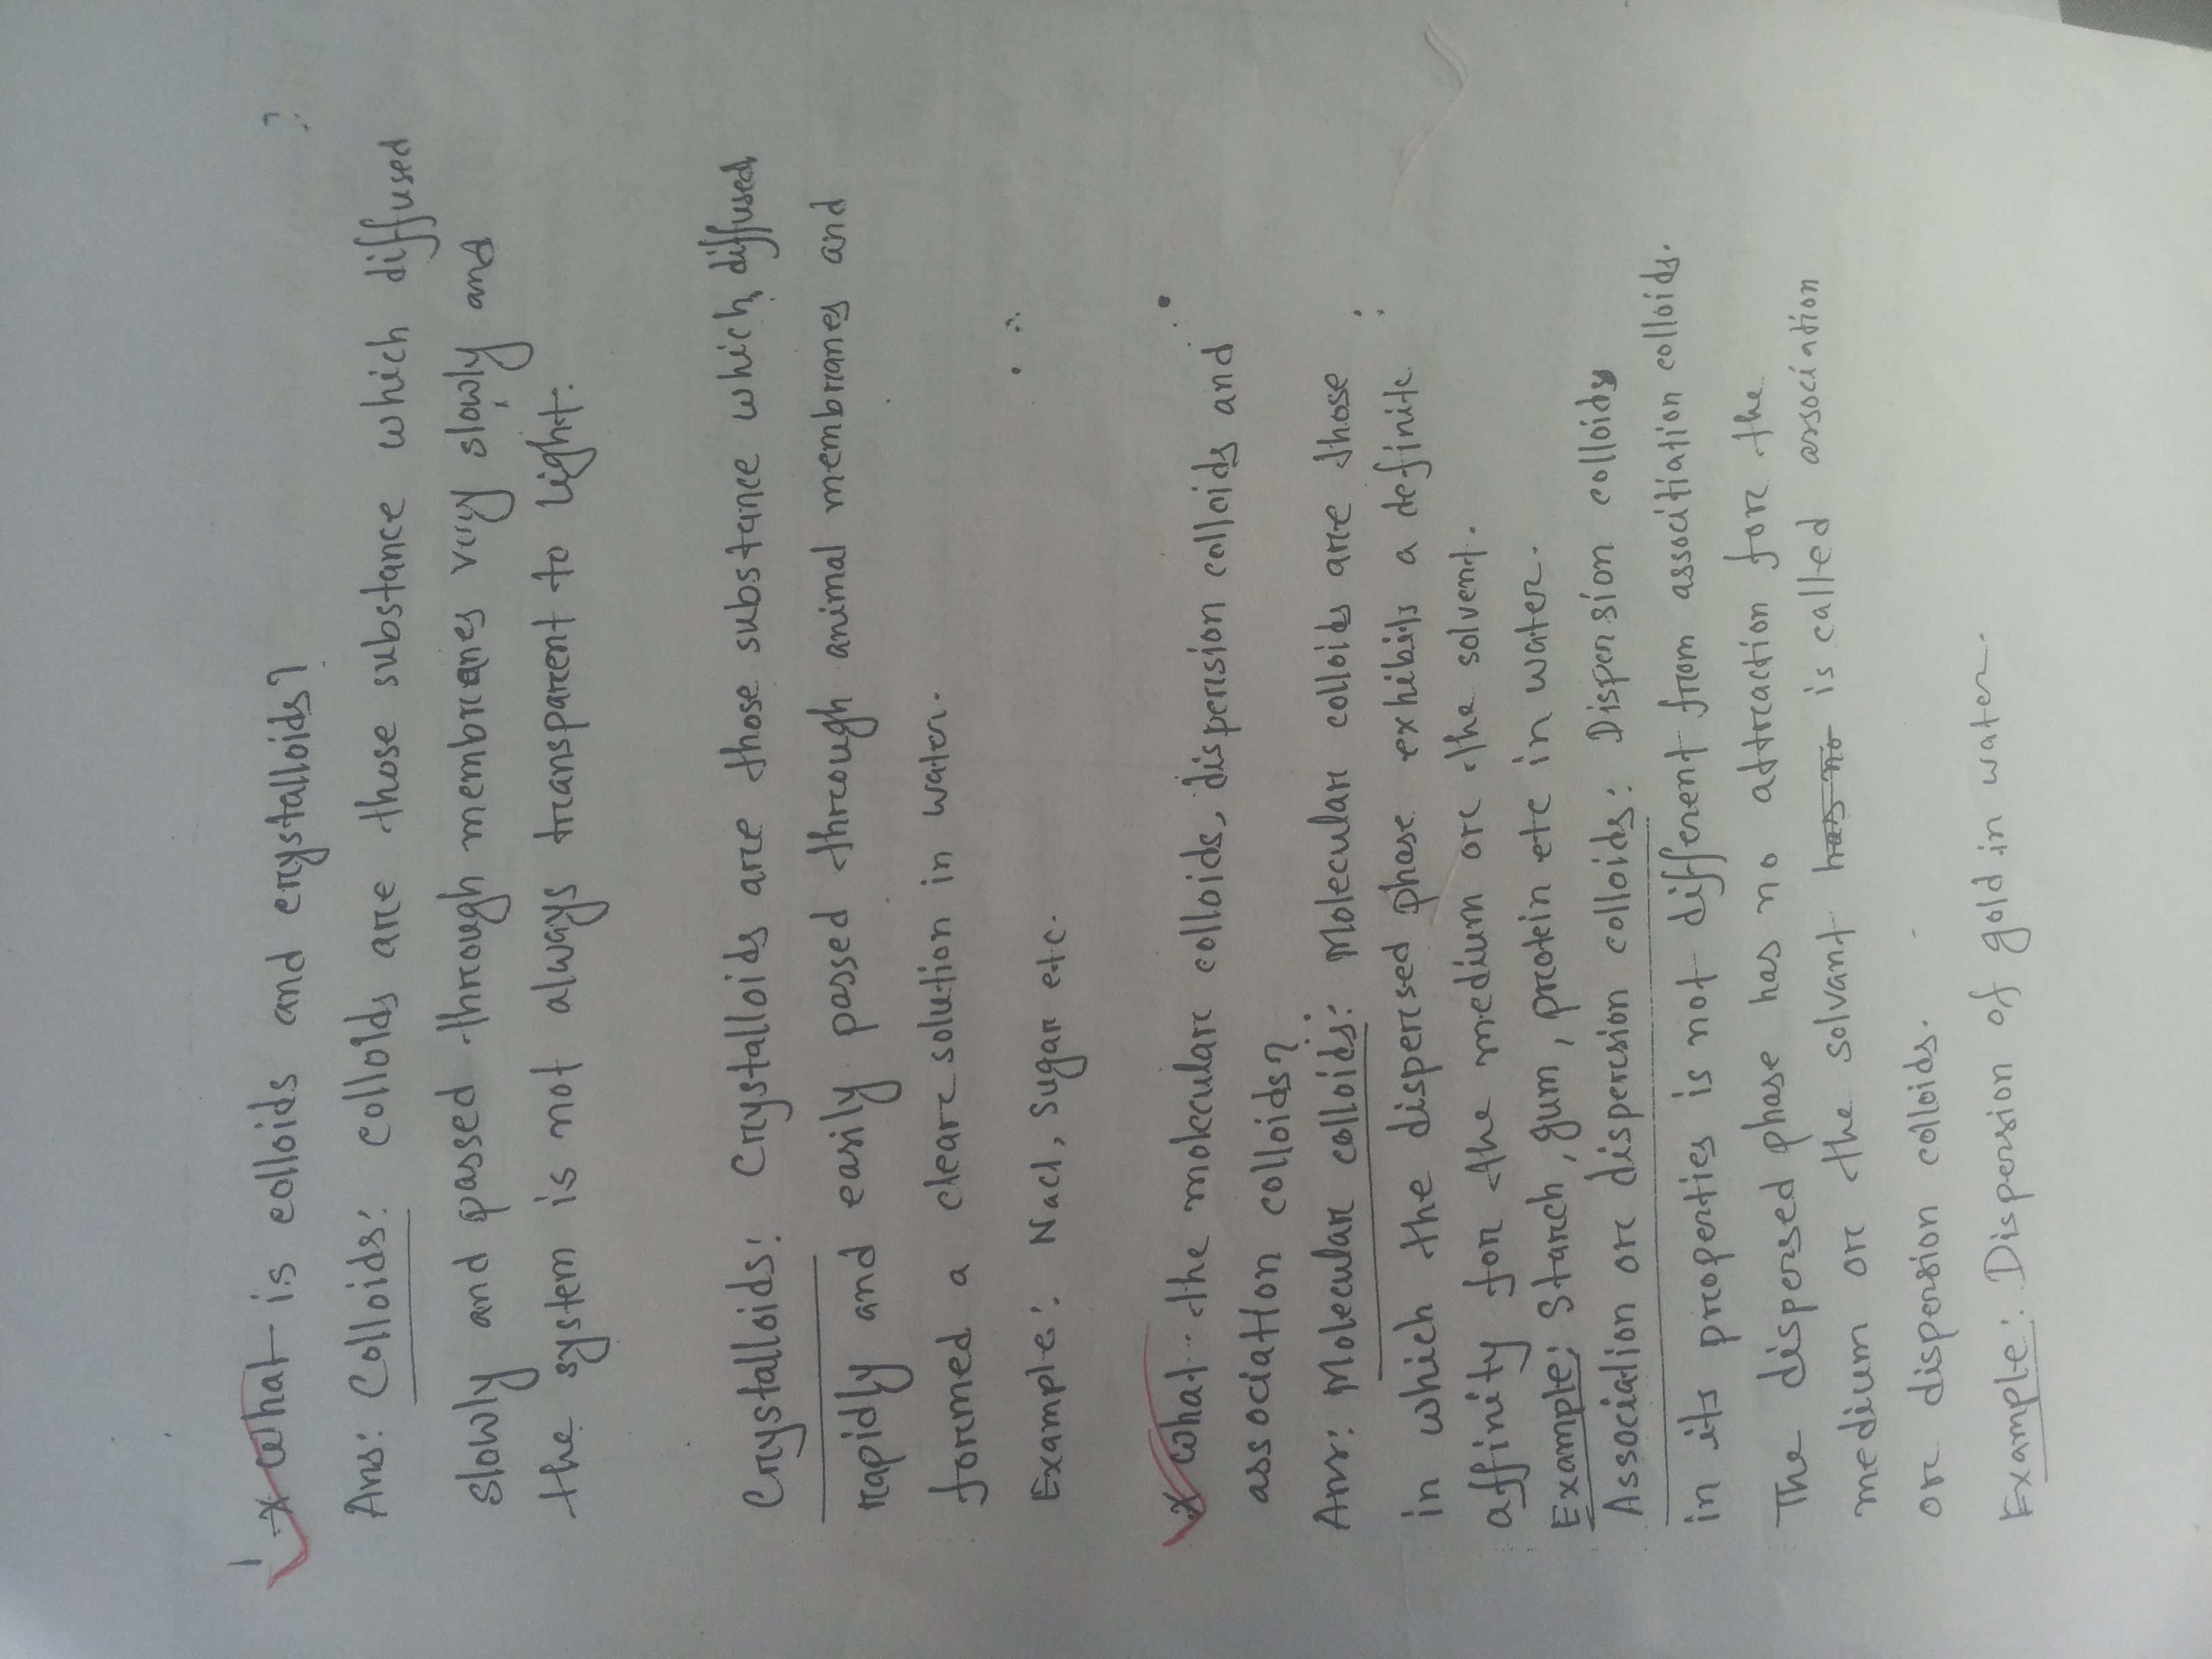 * What is colloids and crystalloids?
Ans: Colloids: collolds are those substance which diffused
slowly and passed through membranes very slowly and
the system is not always transparent to light.
Crystalloids: Crystalloids are those substance which diffused
rapidly and easily passed through animal membranes and
formed a clear solution in water.
Example: Nacl, Sugar etc.
* What the molecular colloids, dispersion colloids and
association colloids?
Ans: Molecular colloids: Molecular colloids are those
in which the dispersed phase exhibits a definite
affinity for the medium or the solvent.
Example: Starch, gum, protein etc in water.
Association or dispersion colloids: Dispersion colloids
in its properties is not different from associtiation colloids.
The dispersed phase has no attraction for the
medium or the solvant has no is called association
or dispersion colloids.
Example: Dispersion of gold in water.